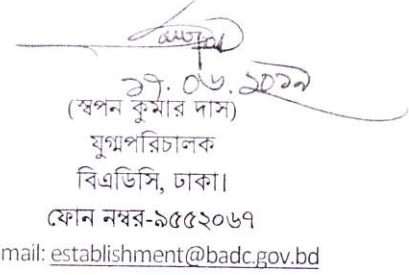 ১৭.০৬.২০১৯
(স্বপন কুমার দাস)
যুগ্মপরিচালক
বিএডিসি, ঢাকা।
ফোন নম্বর-৯৫৫২০৬৭
mail: establishment@badc.gov.bd